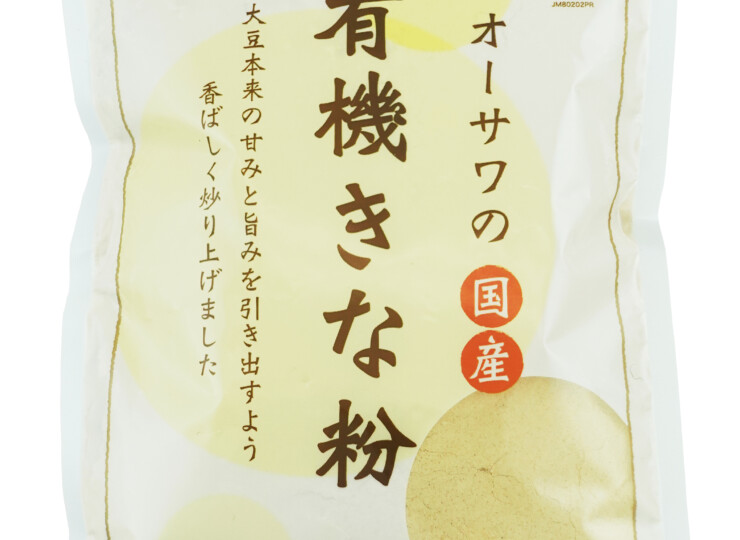 JMB0202PR
オーサワの国産
有機きな粉
大豆本来の甘みと旨みを引き出すよう
香ばしく炒り上げました